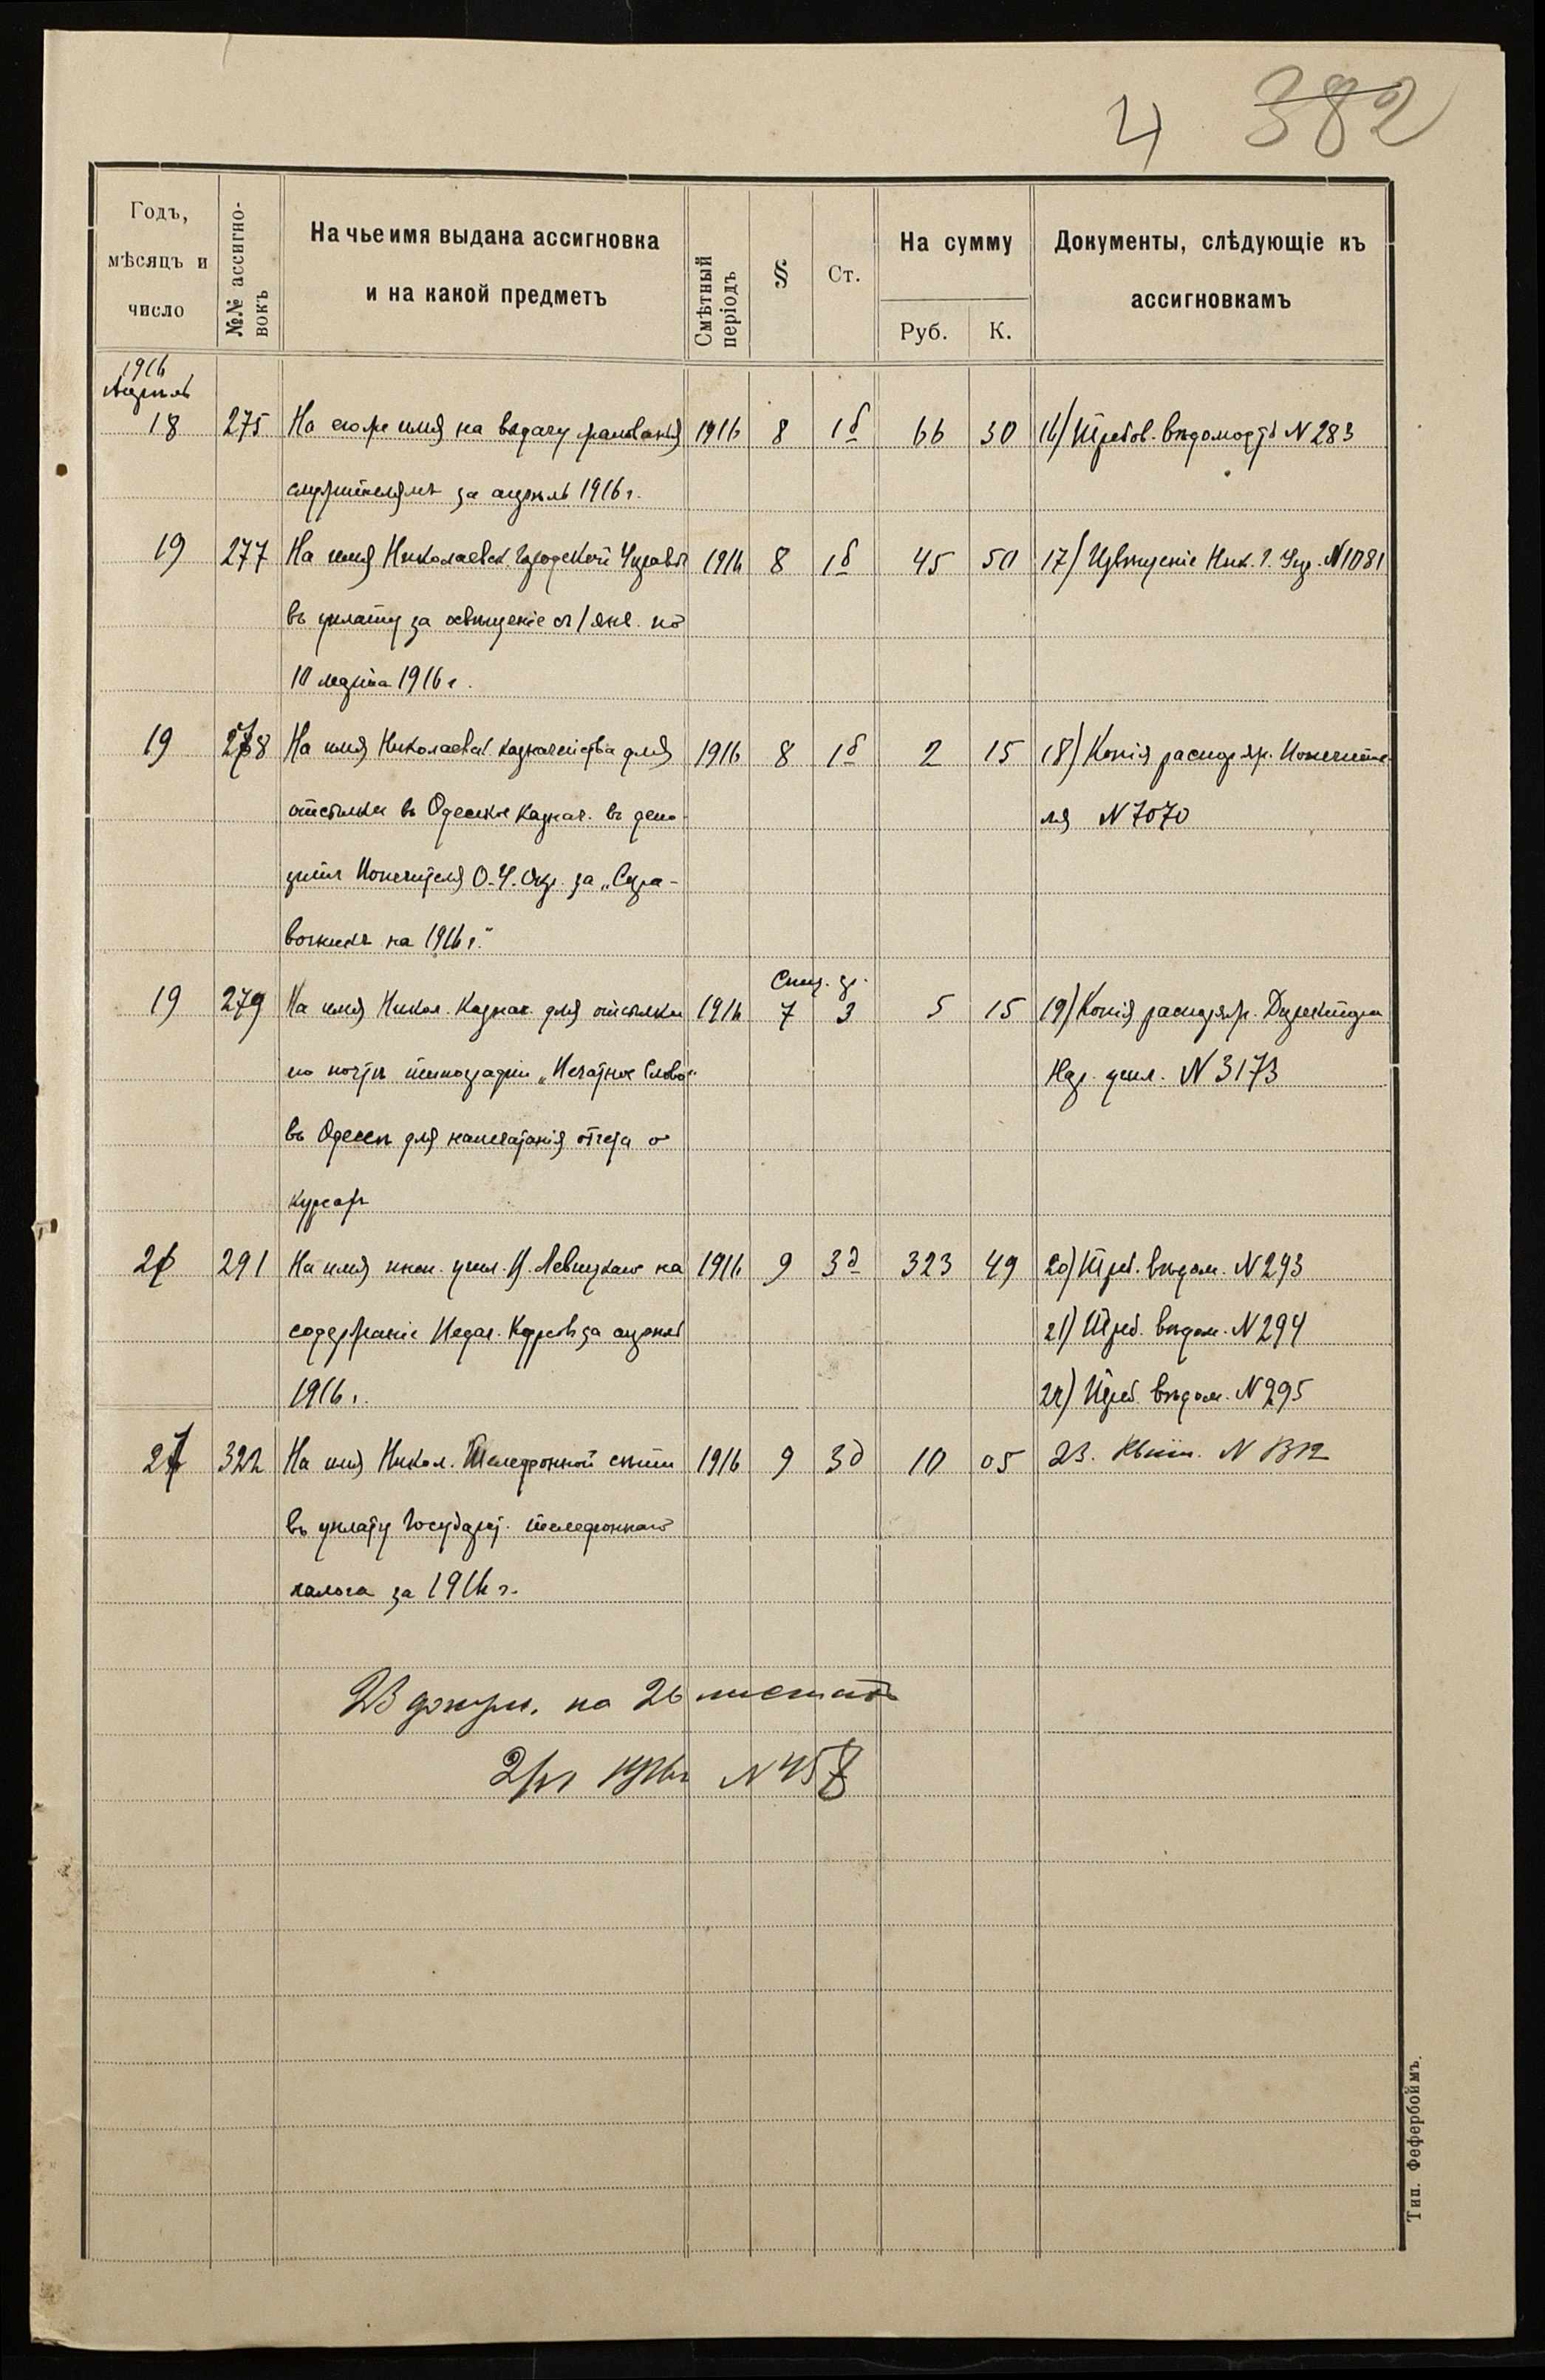 4 382
Годъ, мѣсяцъ и число
№№ ассигновокъ
На чье имя выдана ассигновка и на какой предметъ
Смѣтный періодъ
§
Ст.
На сумму
Руб. К.
Документы, слѣдующіе къ ассигновкамъ
1916
Апрѣль
18 275 На его же имя на выдачу жалованья 1916 8 1б 66 30 16) Требов. вѣдомость N 283
служителямъ за апрѣль 1916 г.
19 277 На имя Николаевск. Городской Управы 1916 8 1б 45 50 17) Извѣщеніе Ник. Г. Упр. N 1081
въ уплату за освѣщеніе съ 1 янв. по
10 марта 1916 г.
19 278 На имя Николаевск. казначейства для 1916 8 1б 2 15 18) Копія распоряж. Попечите
отсылки въ Одесское казнач. въ депо- ля N 7070
зитъ Попечителя О. У. Окр. за „Спра-
вочникъ на 1916 г.“
Спец. ср.
19 279 На имя Никол. Казнач. для отсылки 1916 7 3 5 15 19) Копія распоряж. Директора
по почтѣ типографіи „Печатное Слово“ Нар. учил. N 3173
въ Одессѣ для напечатанія отчета о
курсахъ
291 На имя инсп. учил. Левицкаго на 1916 9 3д 323 49 20) Треб. вѣдом. N 293
содержаніе Педаг. Курсовъ за апрѣль 21) Треб. вѣдом. N 294
1916 г. 22) Треб. вѣдом. N 295
27 322 На имя Никол. Телефонной сѣти 1916 9 3д 10 05 23. Квит. N
въ уплату Государст. телефоннаго
налога за 1916 г.
23 докум. на 26 листахъ
1916 г. N 457
Тип. Фефербоймъ.